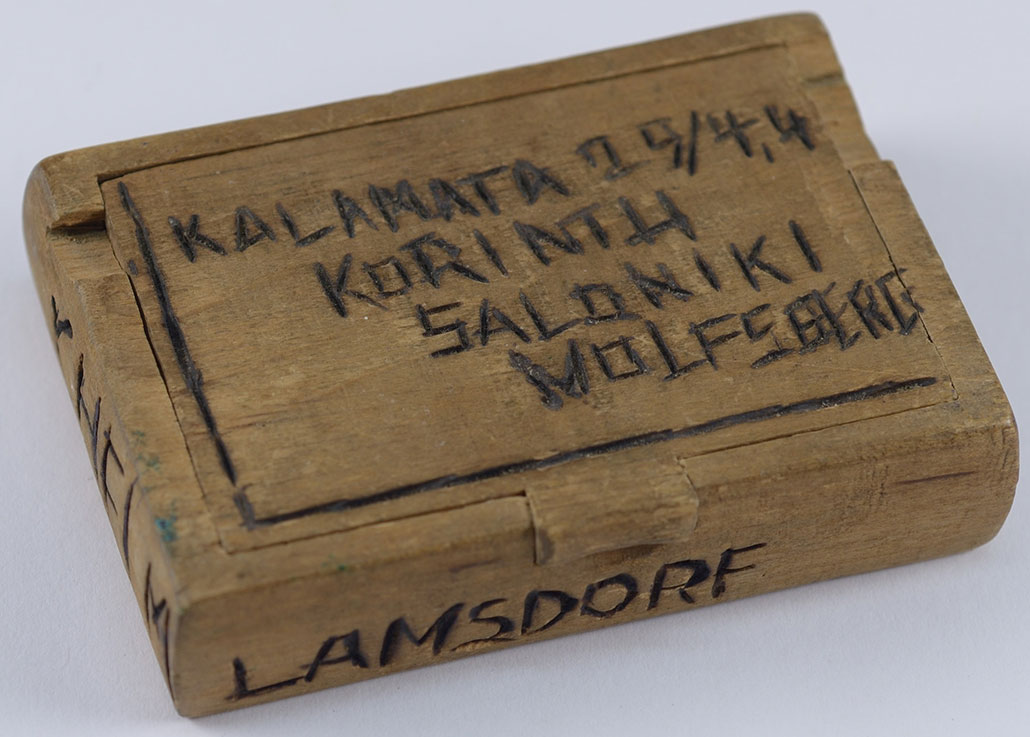 KALAMATA 29/4,4
KORINTH
SALONIKI
WOLFSBERG
LAMSDORF